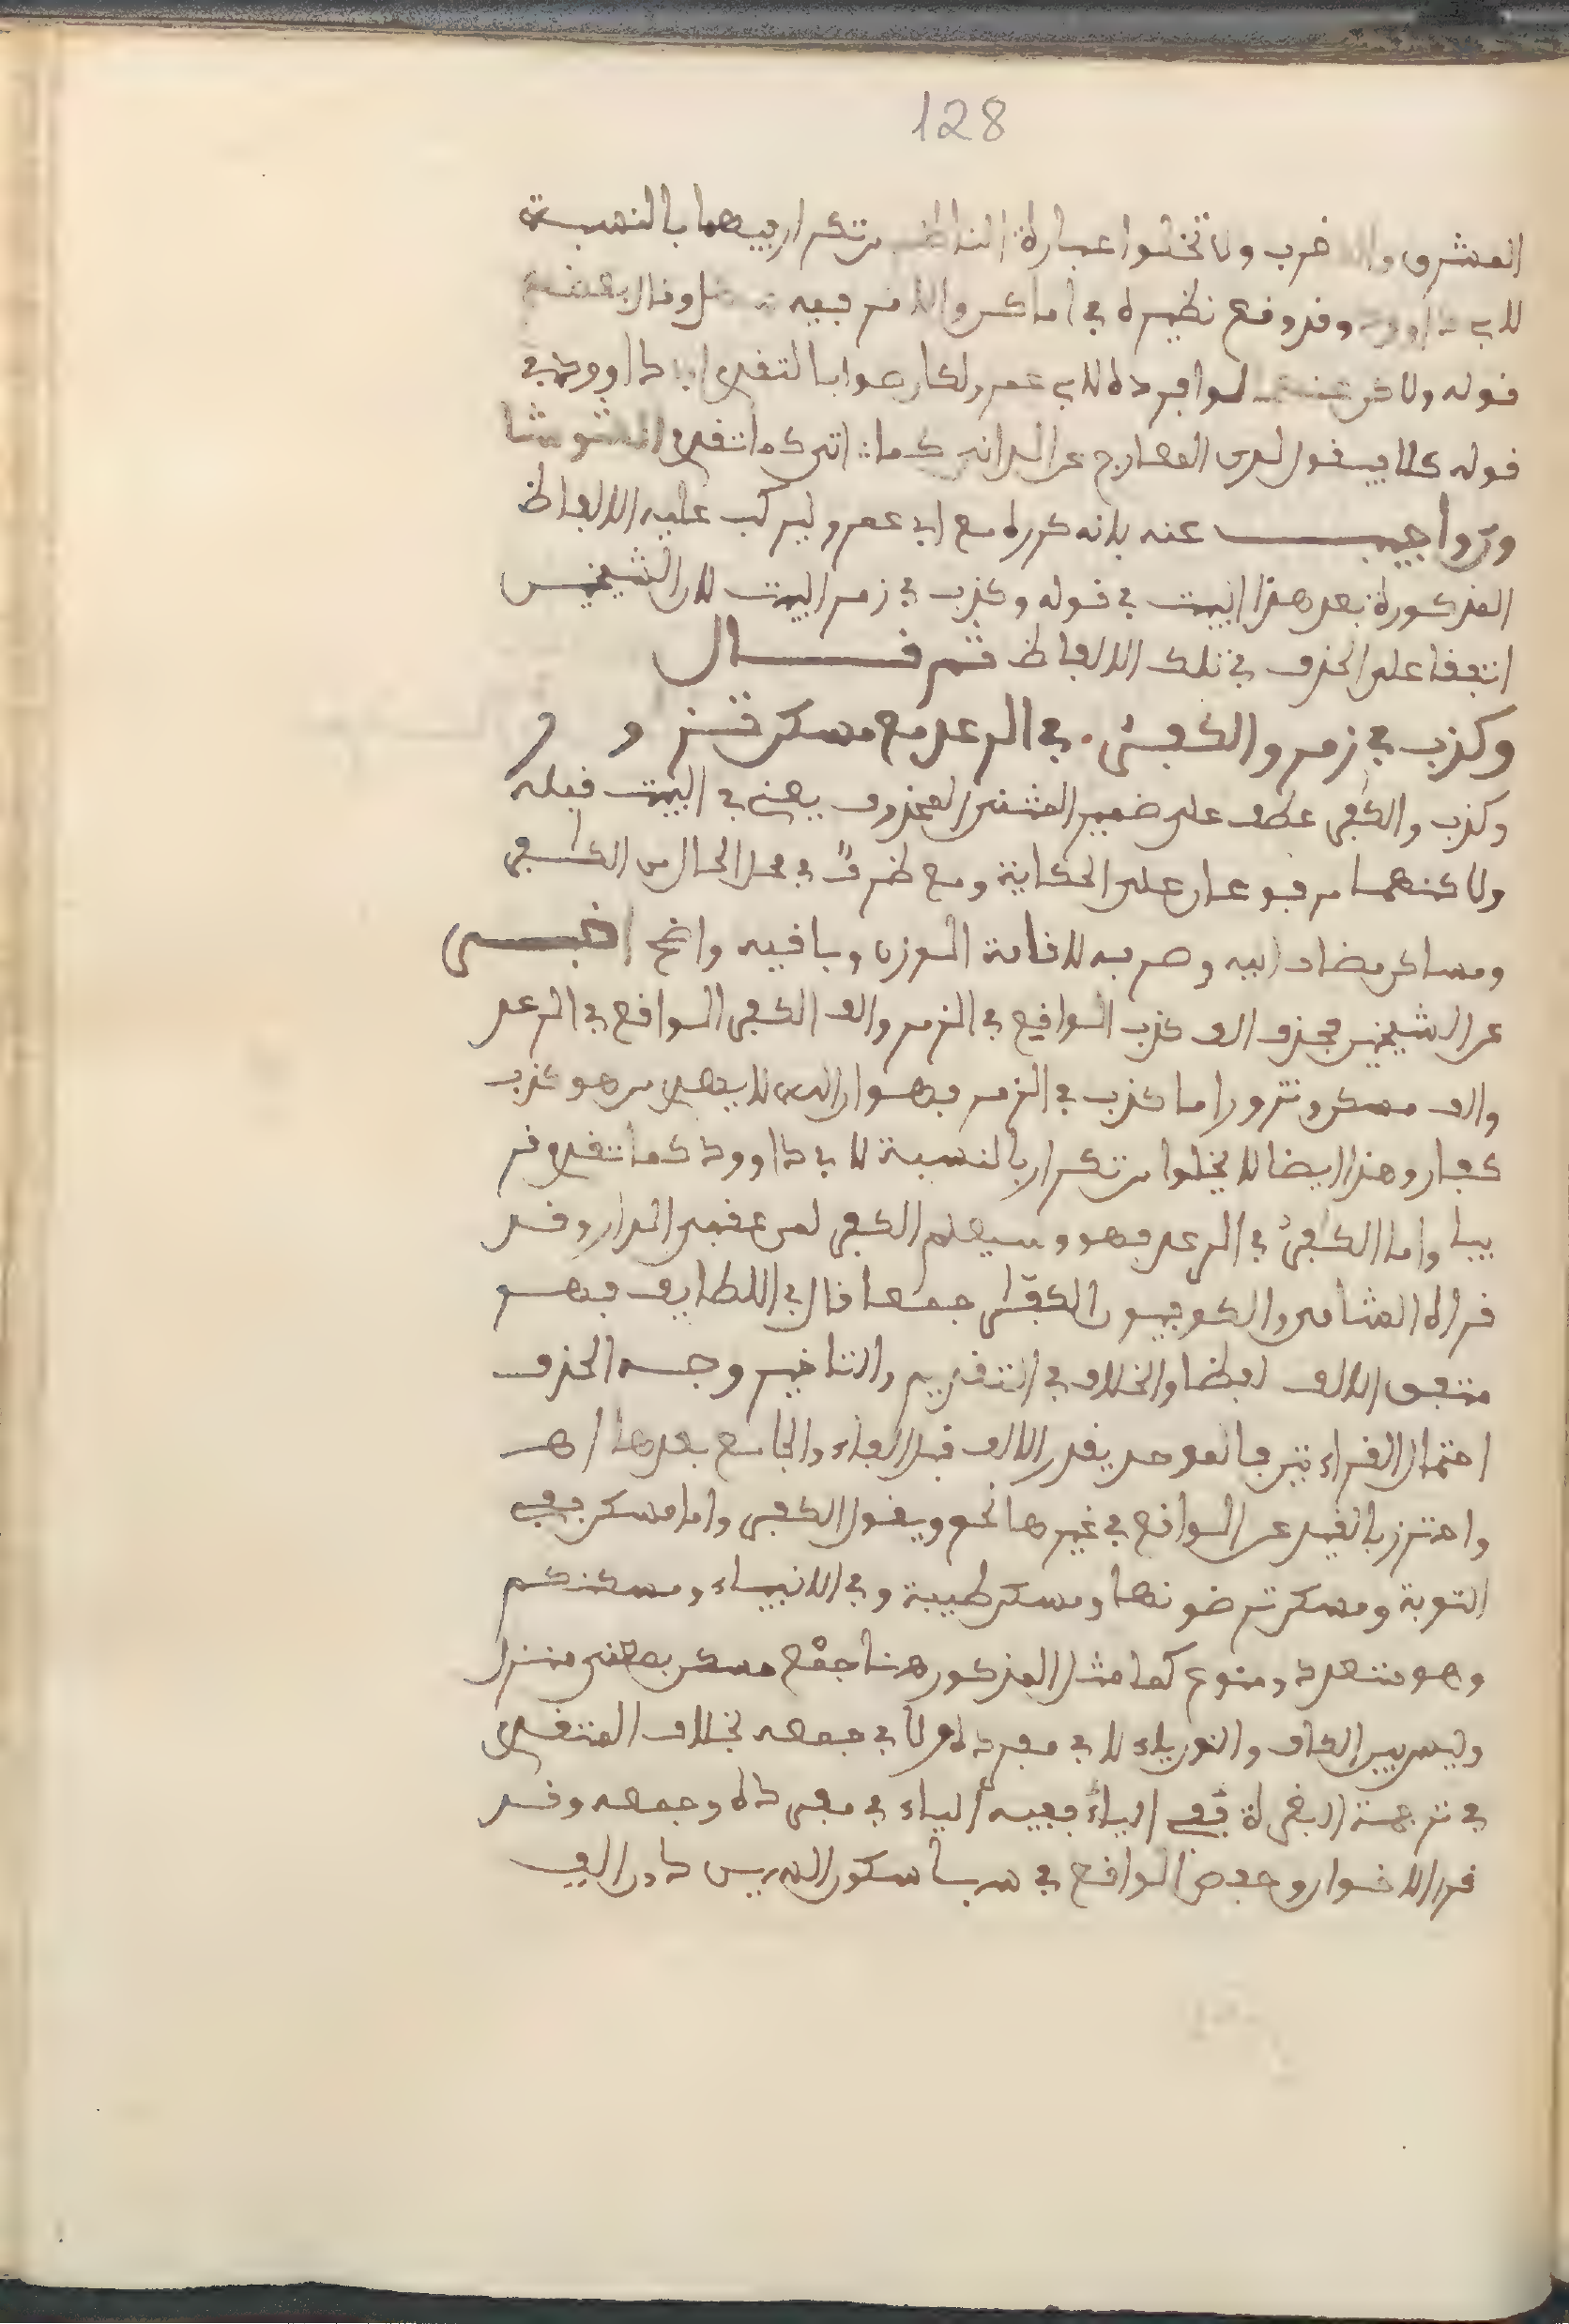 128
المشرق والمغرب ولا تخلوا عبارة الناظم من تكرار فيهما بالنسبة
لابي داوود وقد وقع نظيره في اماكن والامر فيه سهل وقال بعضهم
قوله ولاكن عنه لو افرده لابي عمرو لكان صوابا لتقدم ابا داوود في
قوله كلا يسقوا لدى المعارج عن الداني كما اترك ما تقدم
واجيب عنه بانه كرره مع ابي عمرو ليركب عليه الالفاظ
المذكورة بعد هذا البيت في قوله وكذب في زمر البيت لان الشيخين
اتفقا على الحذف في تلك الالفاظ ثم قال
وكذب في زمر والكفر في الرعد مع مسكن
وكذب والكفر عطف على ضمير المثنى المحذوف يعني في البيت قبله
ولاكنهما مرفوعان على الحكاية ومع ظرف في محل الحال من الكفر
ومساكن مضاف اليه وصرفه لاقامة الوزن وباقيه واضح اخبر
عن الشيخين بحذف الف كذب الواقع في الزمر والف الكفر الواقع في الرعد
والف مسكن وتزور اما كذب في الزمر فهو ان الله لا يهدي من هو كذب
كفار وهذا ايضا لا يخلوا من تكرار بالنسبة لابي داوود كما تقدم قر
يبا واما الكفر في الرعد فهو وسيعلم الكفر لمن عقبى الدار وقد
قراه الشامي والكوفيون الكفار جمعا قال في اللطايف فهو
متفق الالف لفظا والخلاف في التقديم والتاخير وجه الحذف
احتمال القراءتين فالموحد يقدر الالف قبل الفاء والجامع بعدها اهـ
واحترز بالقيد عن الواقع في غيرها نحو ويقول الكفر واما مسكن ففي
التوبة ومسكن ترضونها ومسكن طيبة وفي الانبياء ومسكنكم
وهو متعدد ومنوع كما مثل المذكور هنا جمع مسكن بمعنى منزل
وليس بين الكاف والنون ياء لا في مفرده ولا في جمعه بخلاف المتقدم
في ترجمة البقرة ففيه الياء في مفرده وجمعه وقد
قرا الاخوان وحفص الواقع في سبا سكون السين دون الف